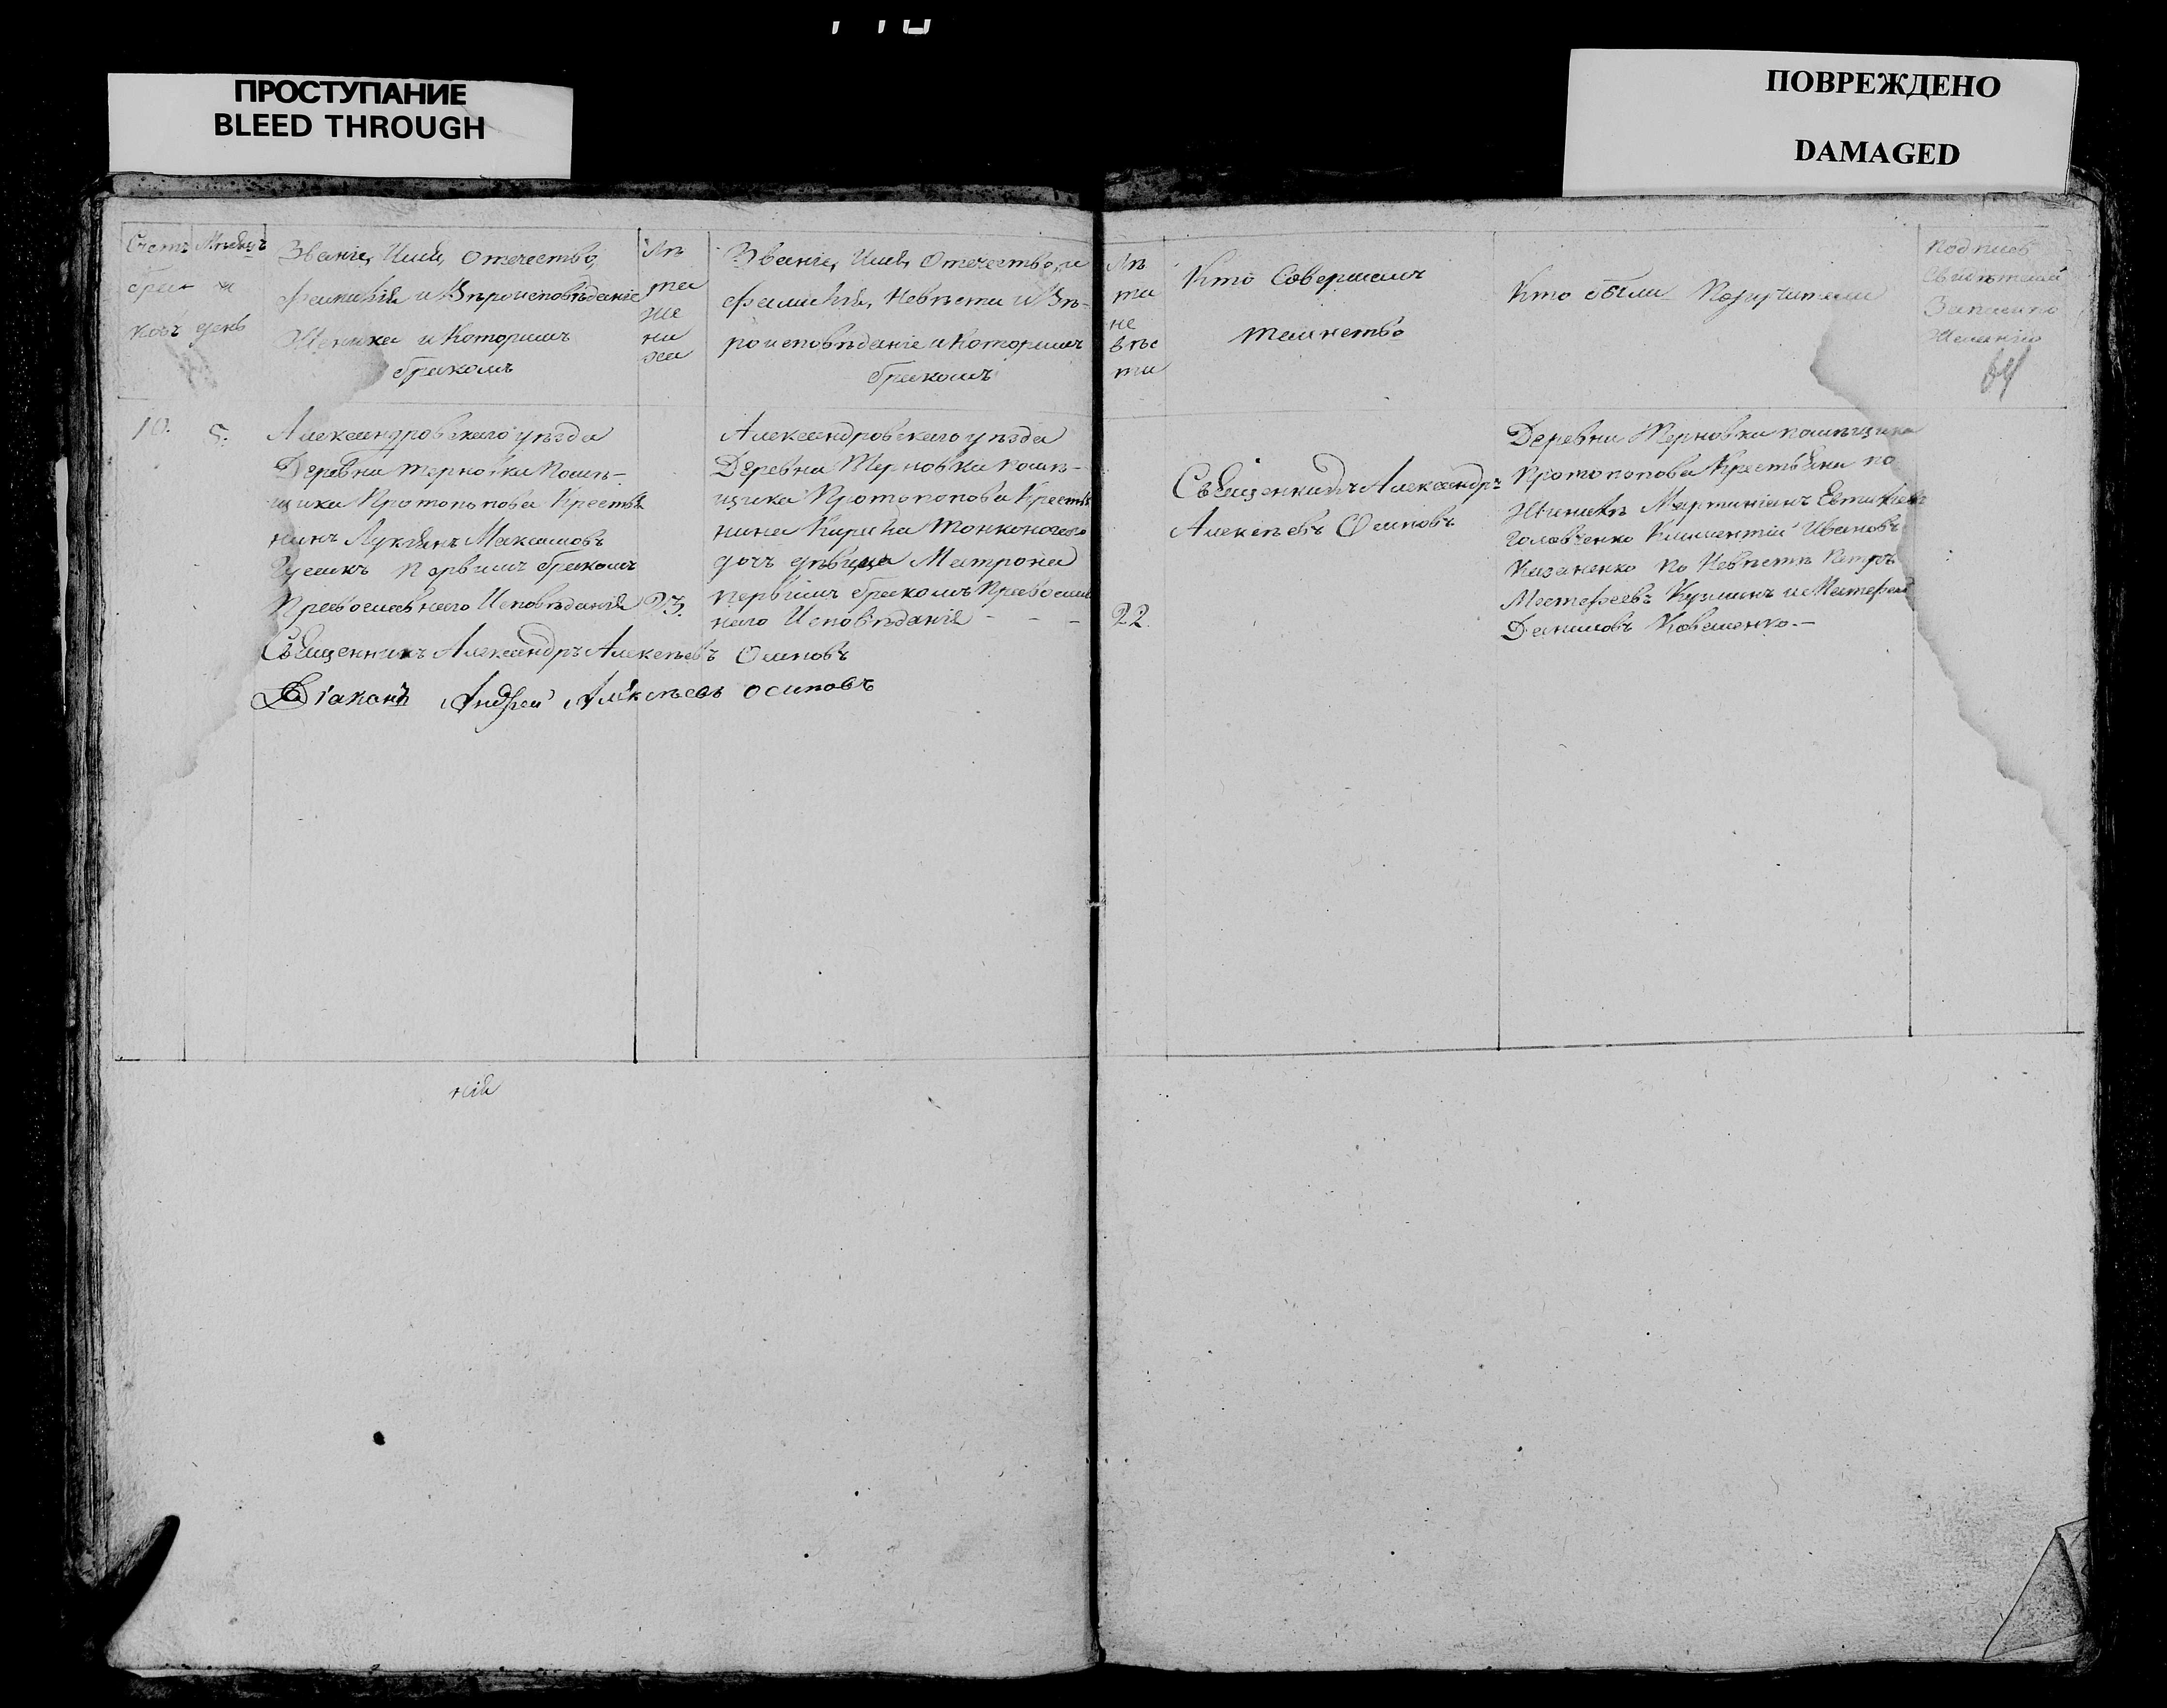 ПРОСТУПАНИЕ
BLEED THROUGH
ПОВРЕЖДЕНО
DAMAGED
Счетъ
бра
ковъ
Мѣсяцъ
и
день
Званіе, Имя, Отечество,
фамилія и Вѣроисповѣданіе
Жениха и Которымъ
бракомъ
Лѣ
та
же
ни
ха
Званіе, Имя, Отечество, и
фамилія, Невѣсты и Вѣ-
роисповѣданіе и Которымъ
бракомъ
Лѣ
та
не
вѣс
ты
Кто Совершалъ
таинство
Кто были Поручители
Подпись
Свидѣтелей
Записи по
Желанію
64
10.
5.
Александровскаго уѣзда
Деревни Терновки Помѣ-
щика Протопопова Крестья
нинъ Лукьянъ Максимовъ
Гусакъ Первымъ бракомъ
Православнаго Исповѣданія
23.
Александровскаго уѣзда
Деревни Терновки помѣ-
щика Протопопова Крестья
нина Кирила Тонконогаго
дочь дѣвица Матрона
первымъ бракомъ Православ
наго Исповѣданія - - -
22.
Священникъ Александръ
Алексѣевъ Осиповъ
Деревни Терновки помѣщика
Протопопова Крестьяни по
Женихѣ Мартиніанъ
Головченко Климентій Ивановъ
Казаненко По Невѣстѣ Петръ
Матфеевъ Кузминъ и Матфей
Даниловъ Коваленко.—
Священникъ Александръ Алексѣевъ Осиповъ
Діаконъ Андрей Алексѣевъ Осиповъ
нія